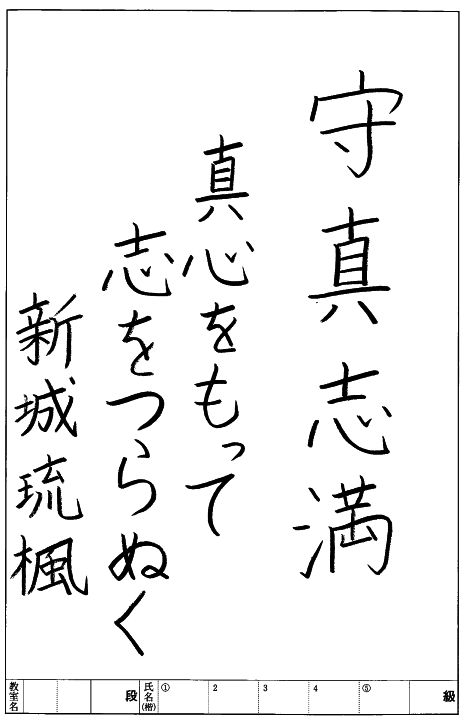 守真志満
真心をもって
志をつらぬく
新城琉楓
級 ⑤ 4 3 2 ① 氏名(楷) 段 教室名